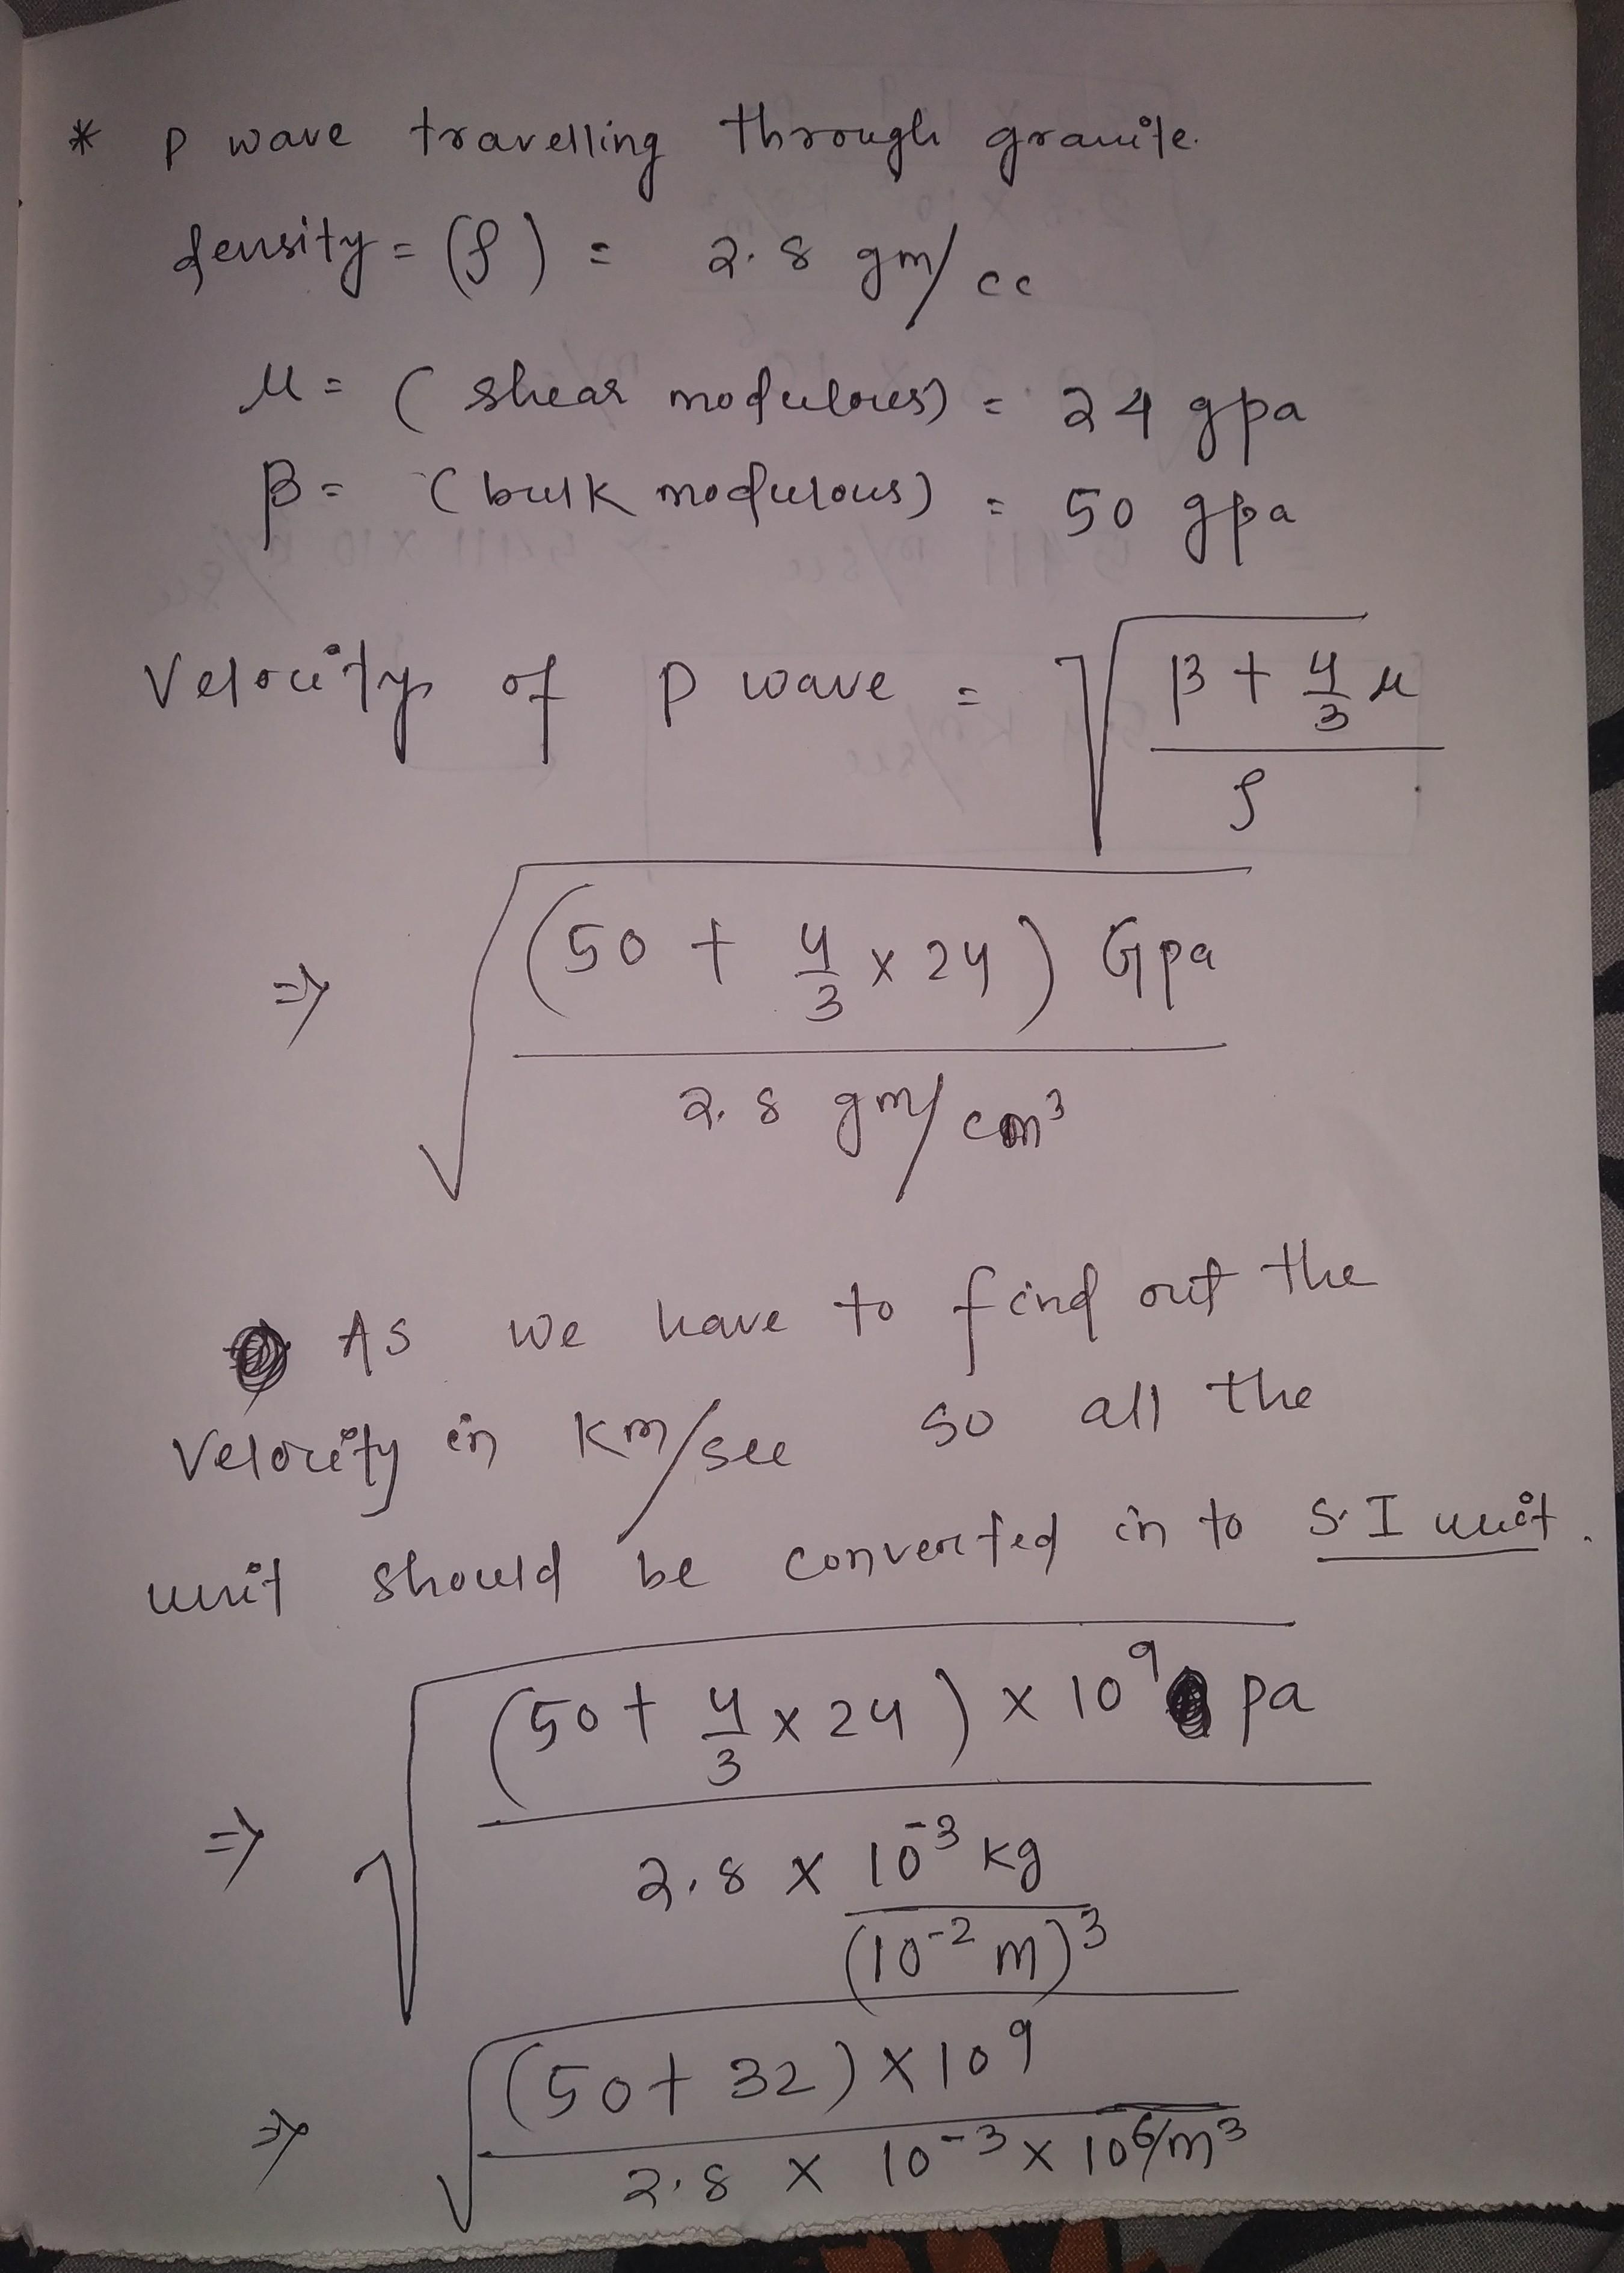 * P wave travelling through granite.
density = (ρ) = 2.8 gm/cc
μ = (shear modulous) = 24 gpa
β = (bulk modulous) = 50 gpa
Velocity of P wave = √((β + 4/3 μ)/ρ)
⇒ √((50 + 4/3 × 24) Gpa / 2.8 gm/cm³)
As we have to find out the
Velocity in Km/sec so all the
unit should be converted in to S.I unit.
⇒ √((50 + 4/3 × 24) × 10⁹ pa / 2.8 × 10⁻³ kg/(10⁻² m)³)
⇒ √((50 + 32) × 10⁹ / 2.8 × 10⁻³ × 10⁶/m³)